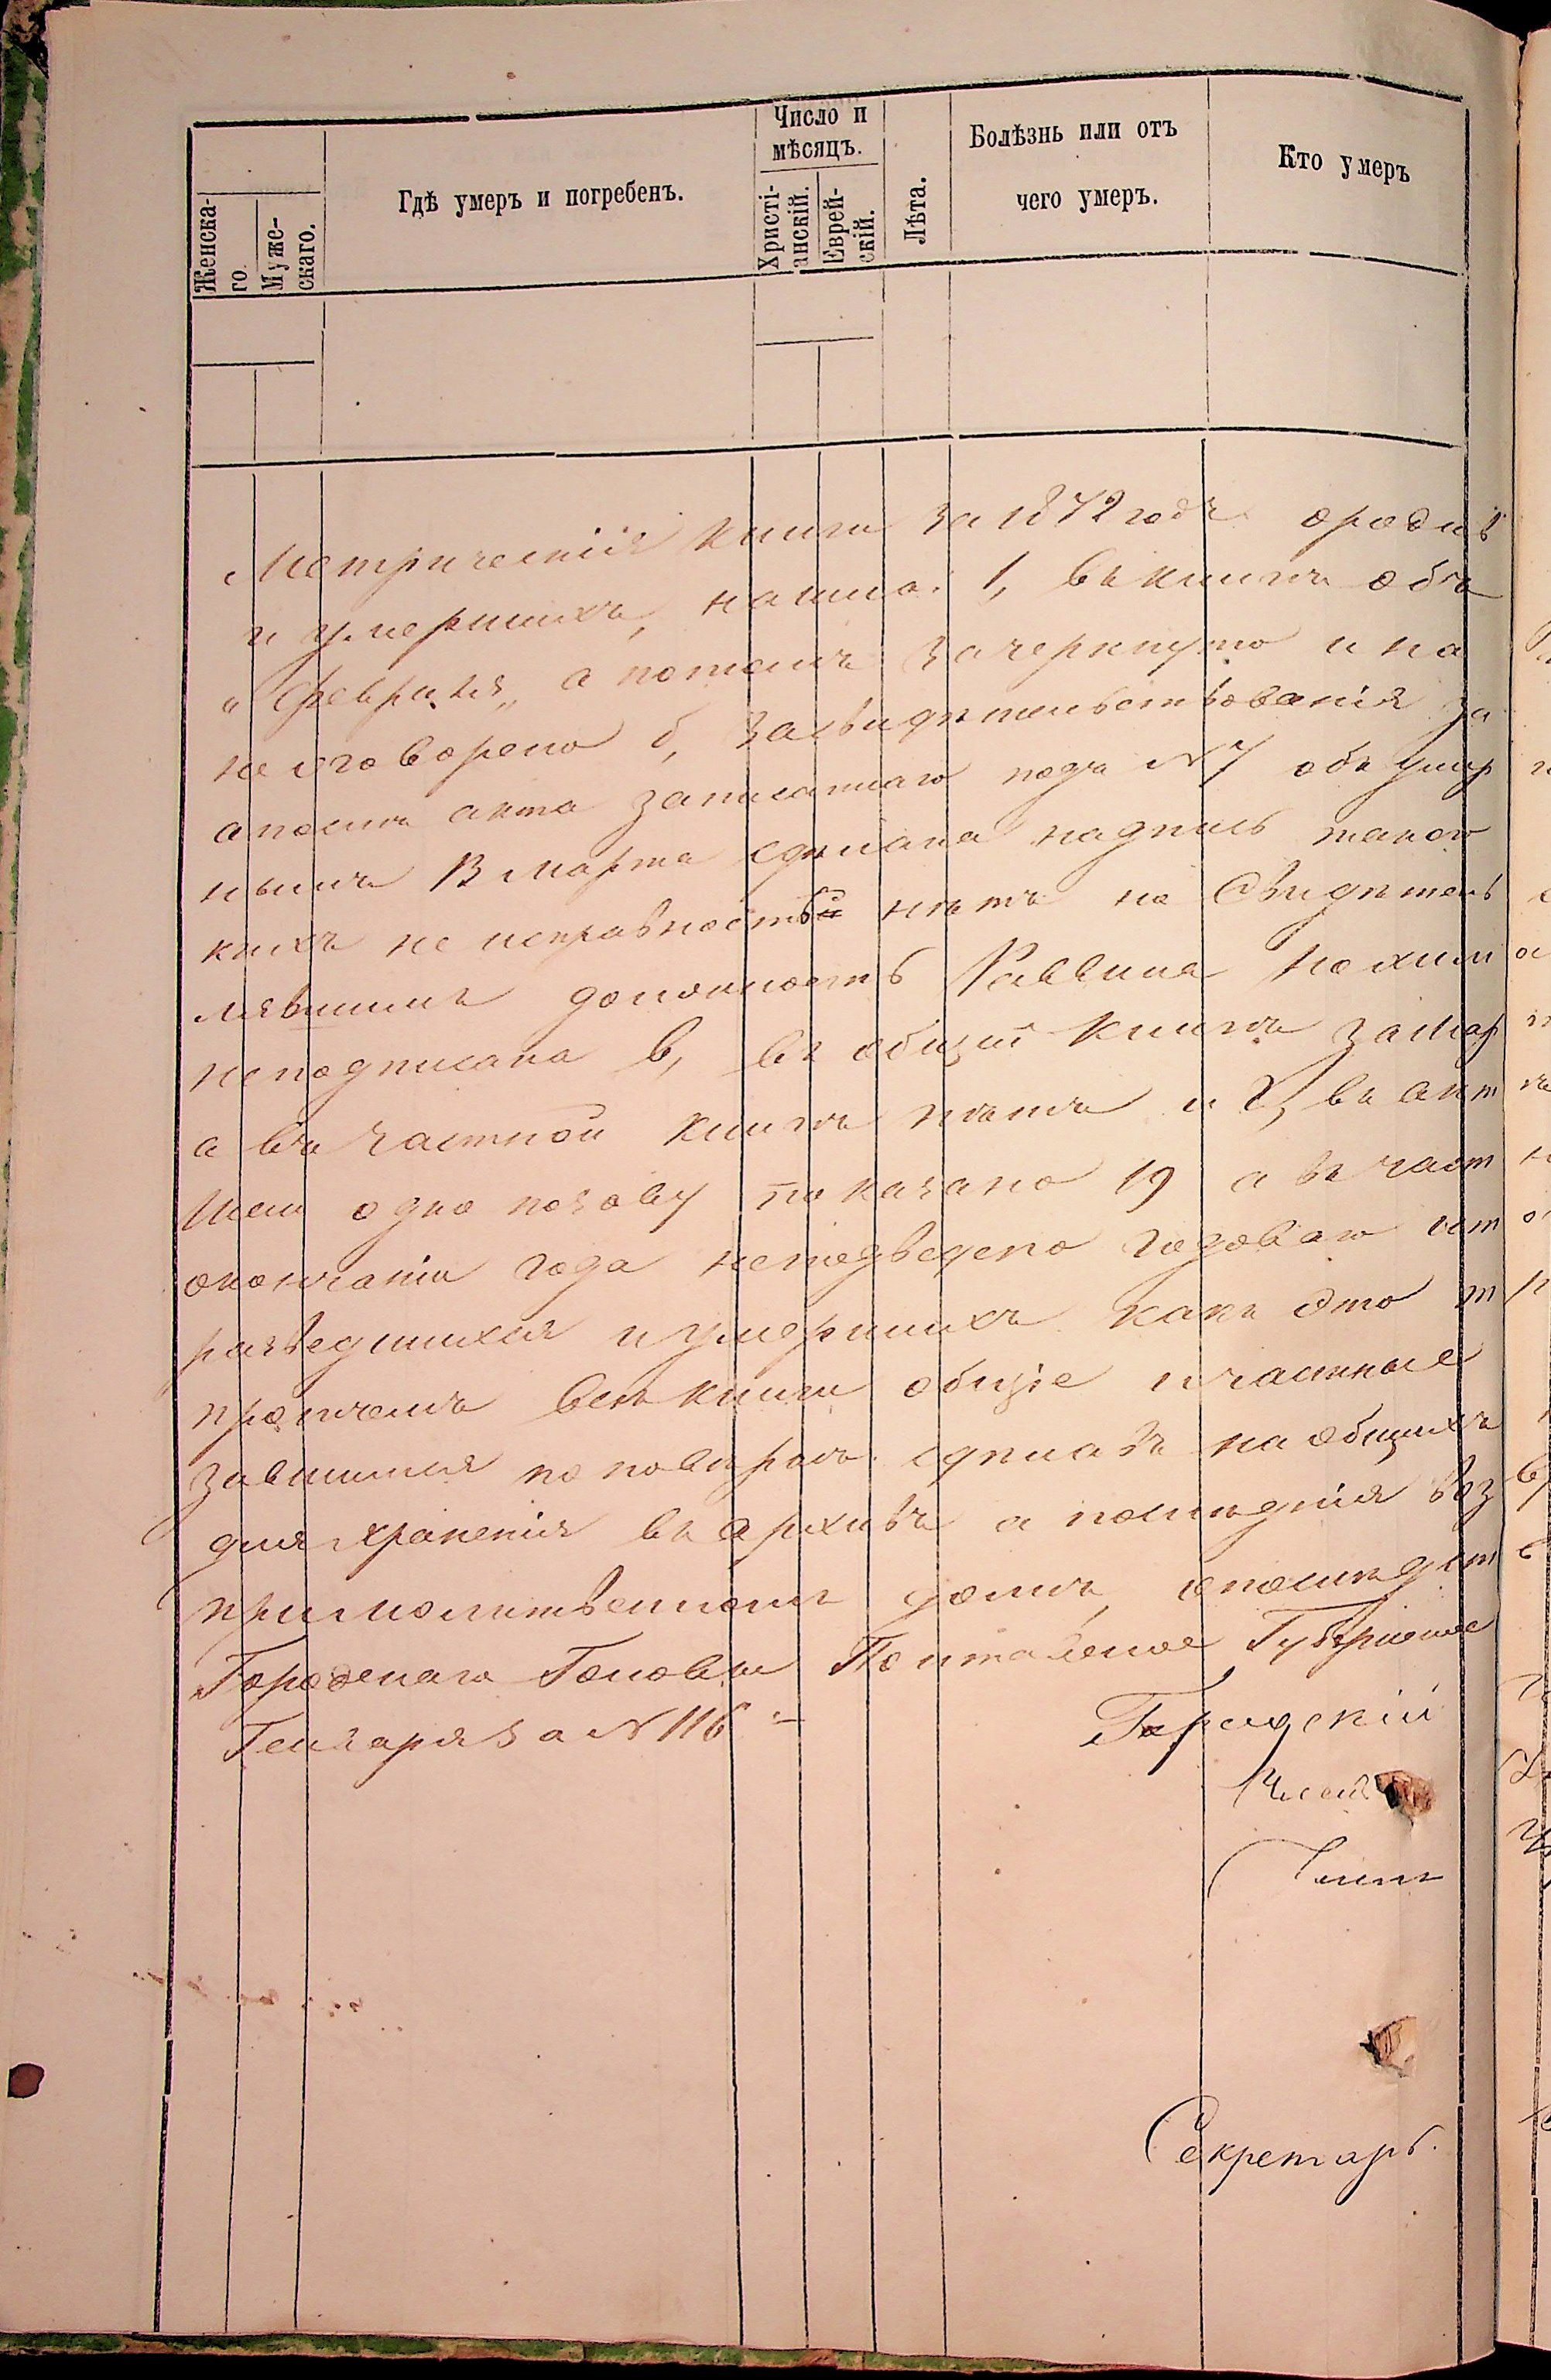 Женска-
го.
Муже-
скаго.
Гдѣ умеръ и погребенъ.
Число и
мѣсяцъ.
Христі-
анскій.
Еврей-
скій.
Лѣта.
Болѣзнь или отъ
чего умеръ.
Кто умеръ
Метрическія книги за 1872 годъ о родив
и умершихъ, нашла: 1, въ книгѣ объ
„Февраля„ а потомъ зачеркнуто и на
не оговорено б, засвидѣтельствованія за
апослѣ акта записаннаго подъ N 7 объ умер
нымъ 13 Марта сдѣлана надпись
кихъ не исправностей нѣтъ но Свидѣтель
лявшимъ должность Раввина
не подписана в, въ общей книгѣ за Мар
а въ частной книгѣ нѣтъ и г, въ акт
показано 19 а въ част
окончаніи года неподведено годоваго ит
разведшихся и умершихъ какъ это т
прочемъ всѣ книги общіе и частные
завшимся по повѣркѣ сдѣлавъ на общихъ
для храненія въ архивѣ а послѣднія воз
при молитвенномъ домѣ, о послѣдст
Городскаго Головы Полтавское Губернское
Генваря за N 116 –
Городскій
Секретарь.